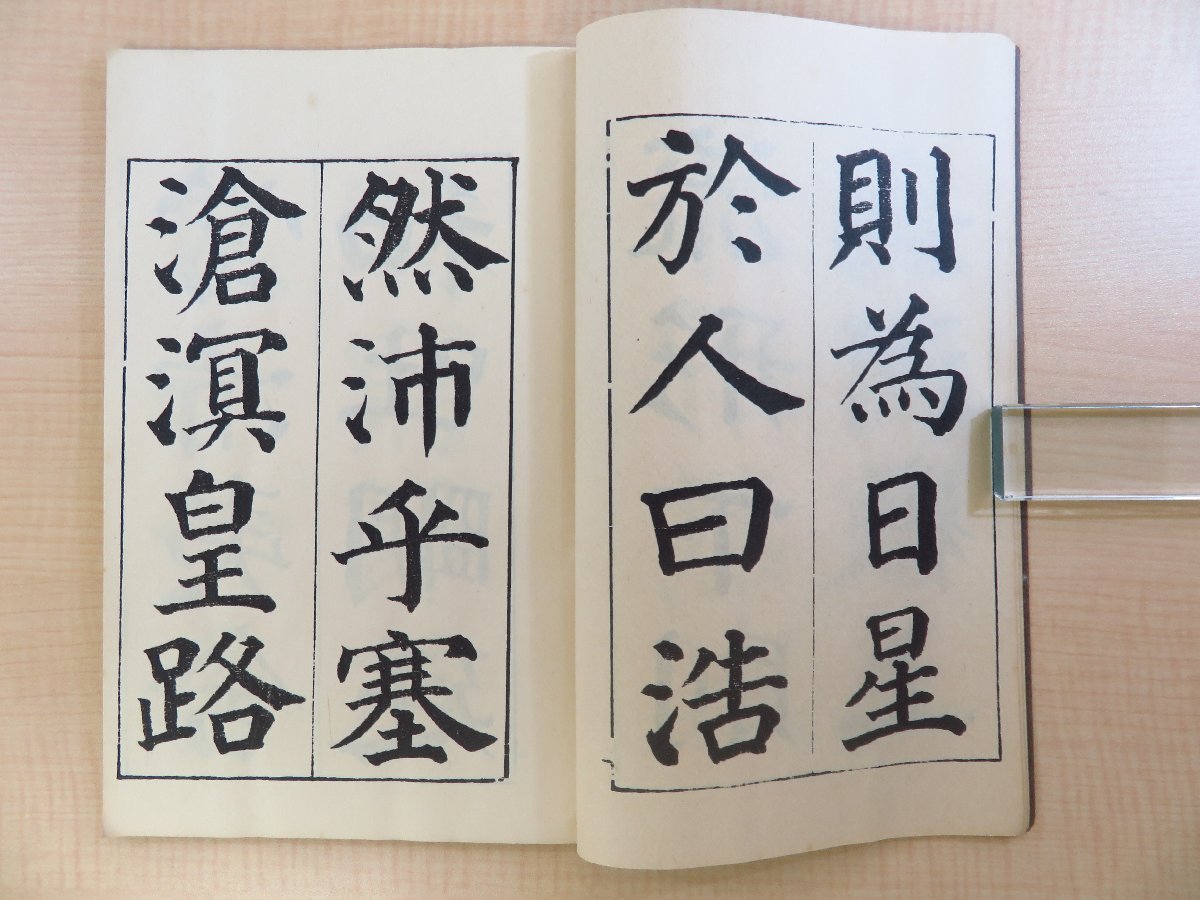 則為日星
於人曰浩
然沛乎塞
滄溟皇路